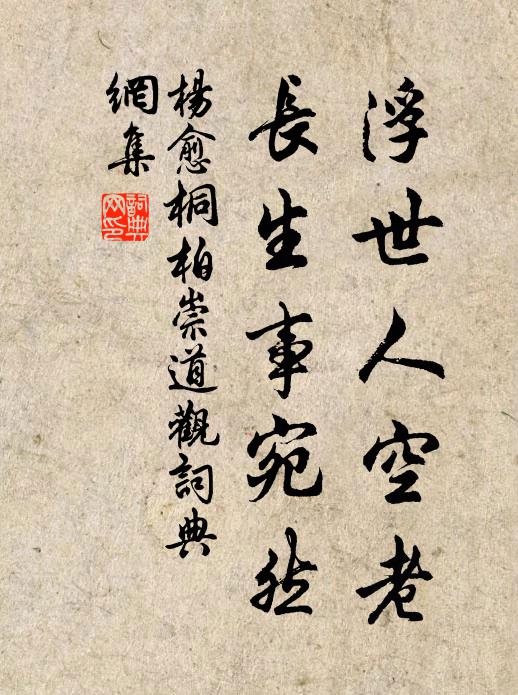 浮世人空老
長生事宛然
楊愈桐柏崇道觀詞典
網集
詞典
网印